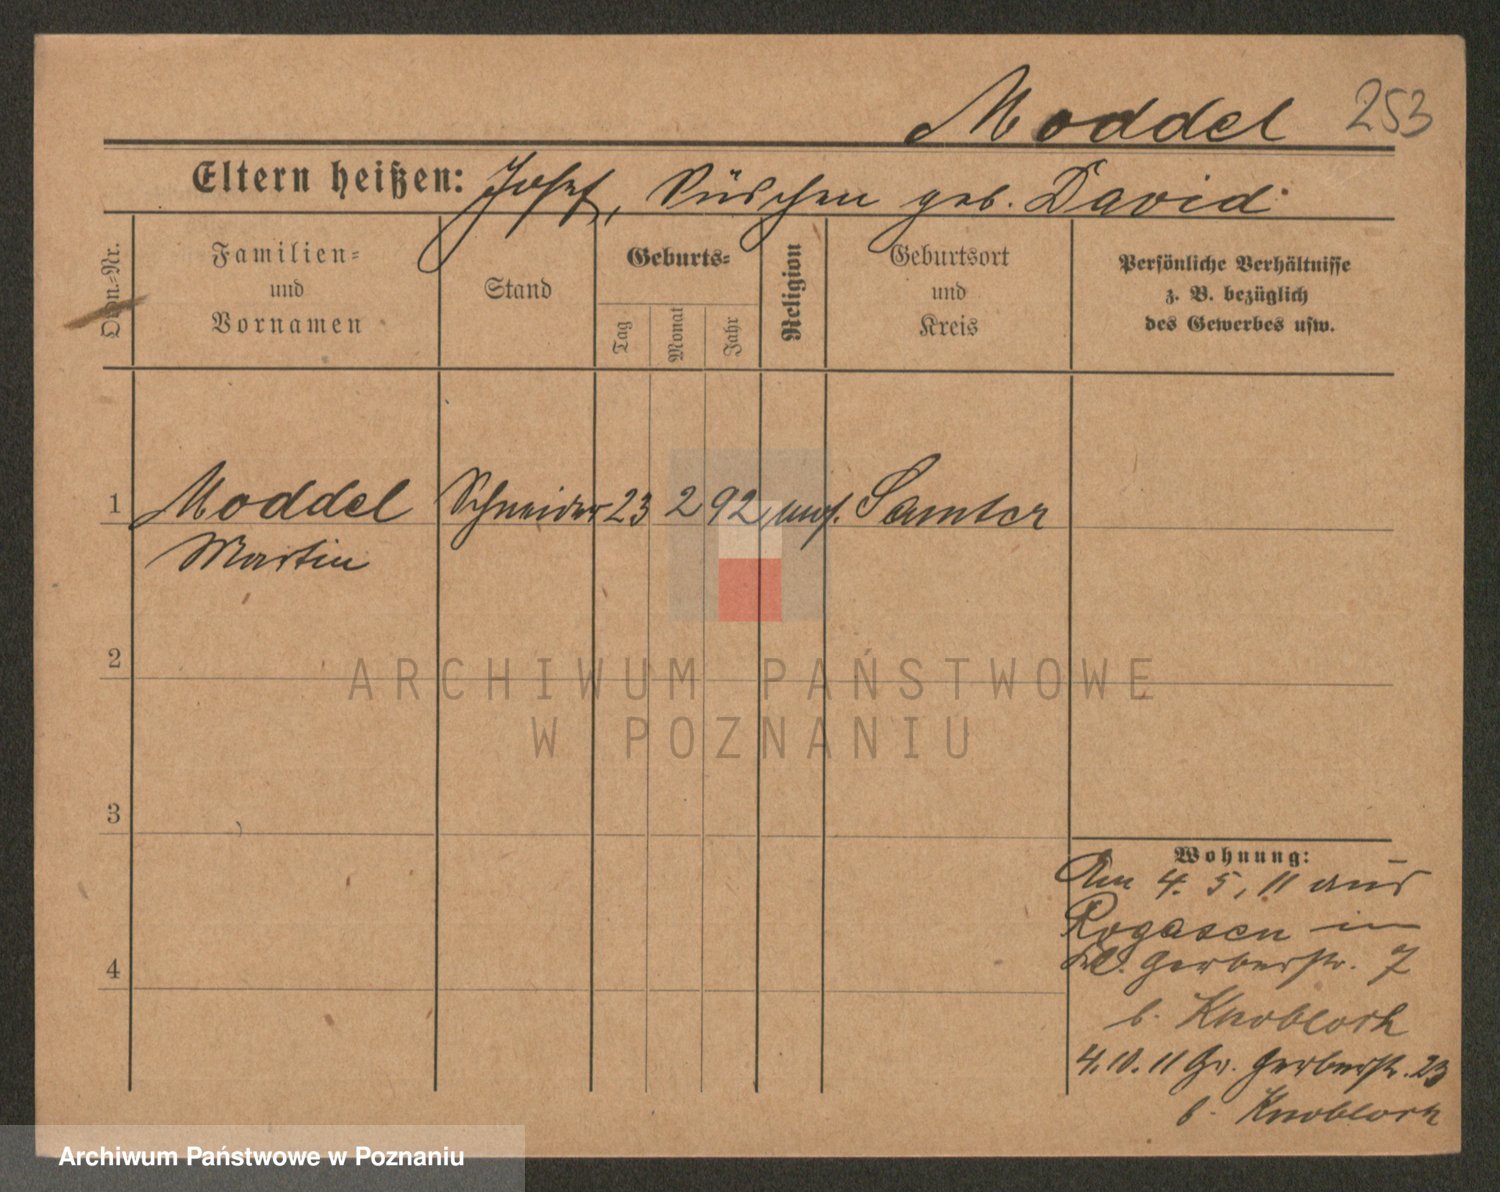 Moddel 253
Eltern heißen: Josef, Süschen geb. David
Ordn.-Nr.
Familien-
und
Vornamen
Stand
Geburts-
Tag
Monat
Jahr
Religion
Geburtsort
und
Kreis
Persönliche Verhältnisse
z. B. bezüglich
des Gewerbes usw.
1 Moddel Schneider 23 2 92 mos. Samter
Martin
2
3
4
Wohnung:
Am 4. 5. 11 aus
Rogasen in
Kl. Gerberstr. 7
b. Knobloch
4. 10. 11 Gr. Gerberstr. 23
b. Knobloch
ARCHIWUM PAŃSTWOWE
W POZNANIU
Archiwum Państwowe w Poznaniu